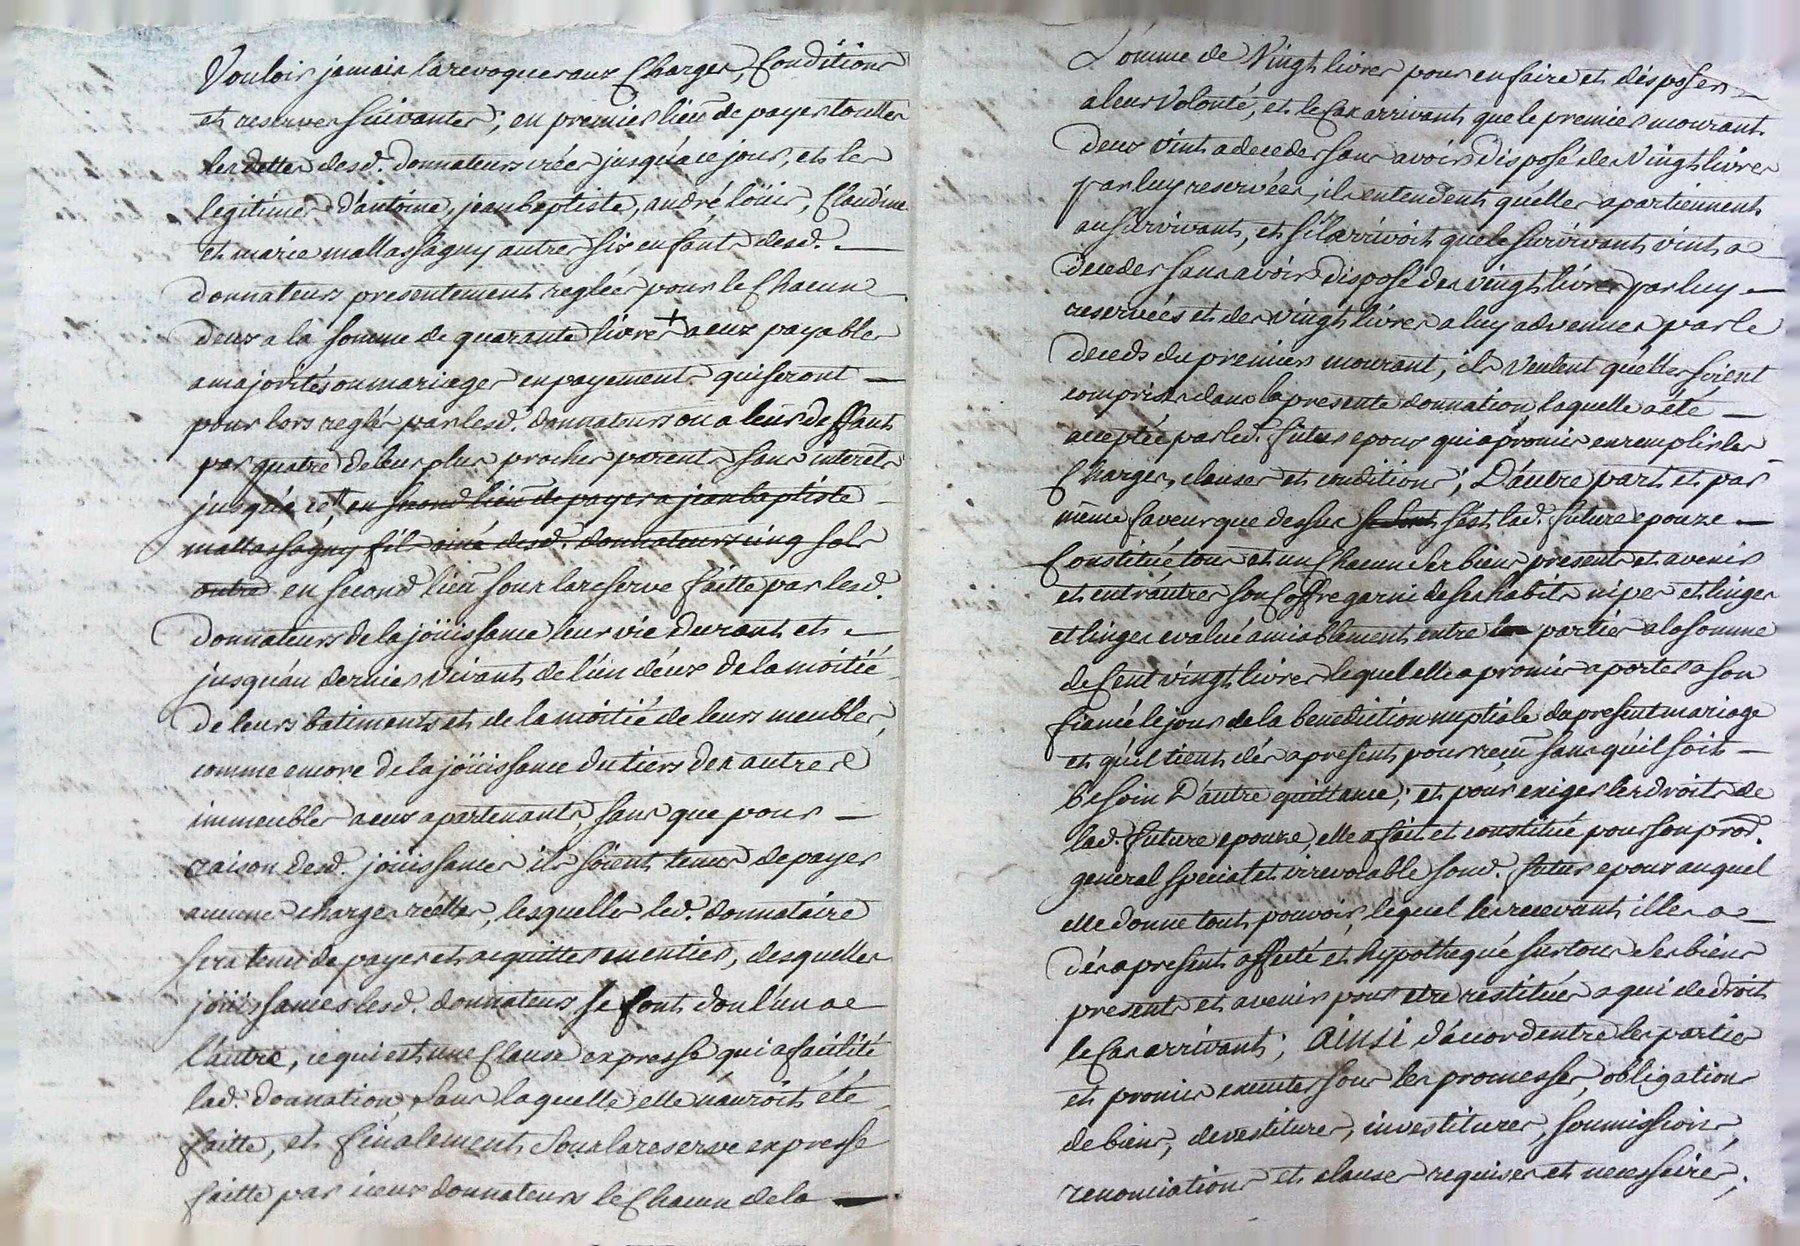 Vouloir jamais la revoquer aux Charges, Conditions
et reserves suivantes; en premier lieu de payer touttes
les dettes desd. donnateurs crées jusqu'a ce jour, et les
legitimes d'antoine, jean baptiste, andré loüis, Claudine
et marie mallassagny autres six enfants desd. —
donnateurs presentement reglées pour le Chacun
deux a la somme de quarante livres + a eux payable
a majorités ou mariages en payements qui seront —
pour lors reglé par lesd. donnateurs ou a leur deffaut
par quatre de leurs plus proches parents sans interets
jusqu'a ce, en second lieu de payer a jean baptiste
mallassagny fils ainé desd. donnateurs cinq sols
outre en second lieu sous la reserve faitte par lesd.
donnateurs de la joüissance leur vie durant et —
jusqu'au dernier vivant de l'un d'eux de la moitié
de leurs batiments et de la moitié de leurs meubles,
comme encore de la joüissance du tiers des autres
immeubles a eux apartenants, sans que pour —
raison desd. joüissances ils soient tenus de payer
aucunes charges réelles, lesquelles led. donnataire
sera tenu de payer et acquitter en entier, desquelles
joüissances lesd. donnateurs se font don l'un a
l'autre, ce qui est une Clause expresse qui a facilité
lad. donnation, sans laquelle elle n'auroit été
faitte, et finalement sous la reserve expresse
faitte par iceux donnateurs le Chacun de la —
Somme de Vingt livres pour en faire et disposer —
a leur Volonté, et le Cas arrivant que le premier mourant
deux vint a deceder sans avoir disposé des Vingt livres
par luy reservées, ils entendent qu'elles apartiennent
au survivant, et s'il arrivoit que le survivant vint a
deceder sans avoir disposé des vingt livres par luy —
reservées et des vingt livres a luy advenues par le
deceds du premier mourant, ils veulent qu'elles soient
comprises dans la presente donnation, laquelle a été —
acceptée par led. futur epoux qui a promis en remplir les
Charges, clauses et conditions; D'autre part et par
même faveur que dessus se sont s'est lad. future epouze —
Constitué tous et un Chacun ses biens presents et avenir
et entr'autres son Coffre garni de ses habits nipes et linges
et linges evalué amiablement entre les parties a la somme
de Cent vingt livres lequel elle a promis aporter a son
fiancé le jour de la benediction nuptiale du present mariage
et qu'il tient dés a present pour reçu sans qu'il soit —
besoin D'autre quittance; et pour exiger les droits de
lad. future epouze, elle a fait et constitué pour son procr.
general special et irrevocable sond. futur epoux auquel
elle donne tout pouvoir, lequel les recevant il les a —
dés a present affecté et hypothequé sur tous ses biens
presents et avenir pour etre restitués a qui de droit
le Cas arrivant; ainsi d'accord entre les parties
et promis executer sous les promesses, obligations
de biens, devestitures, investitures, soumissions,
renonciations et clauses requises et necessaires,